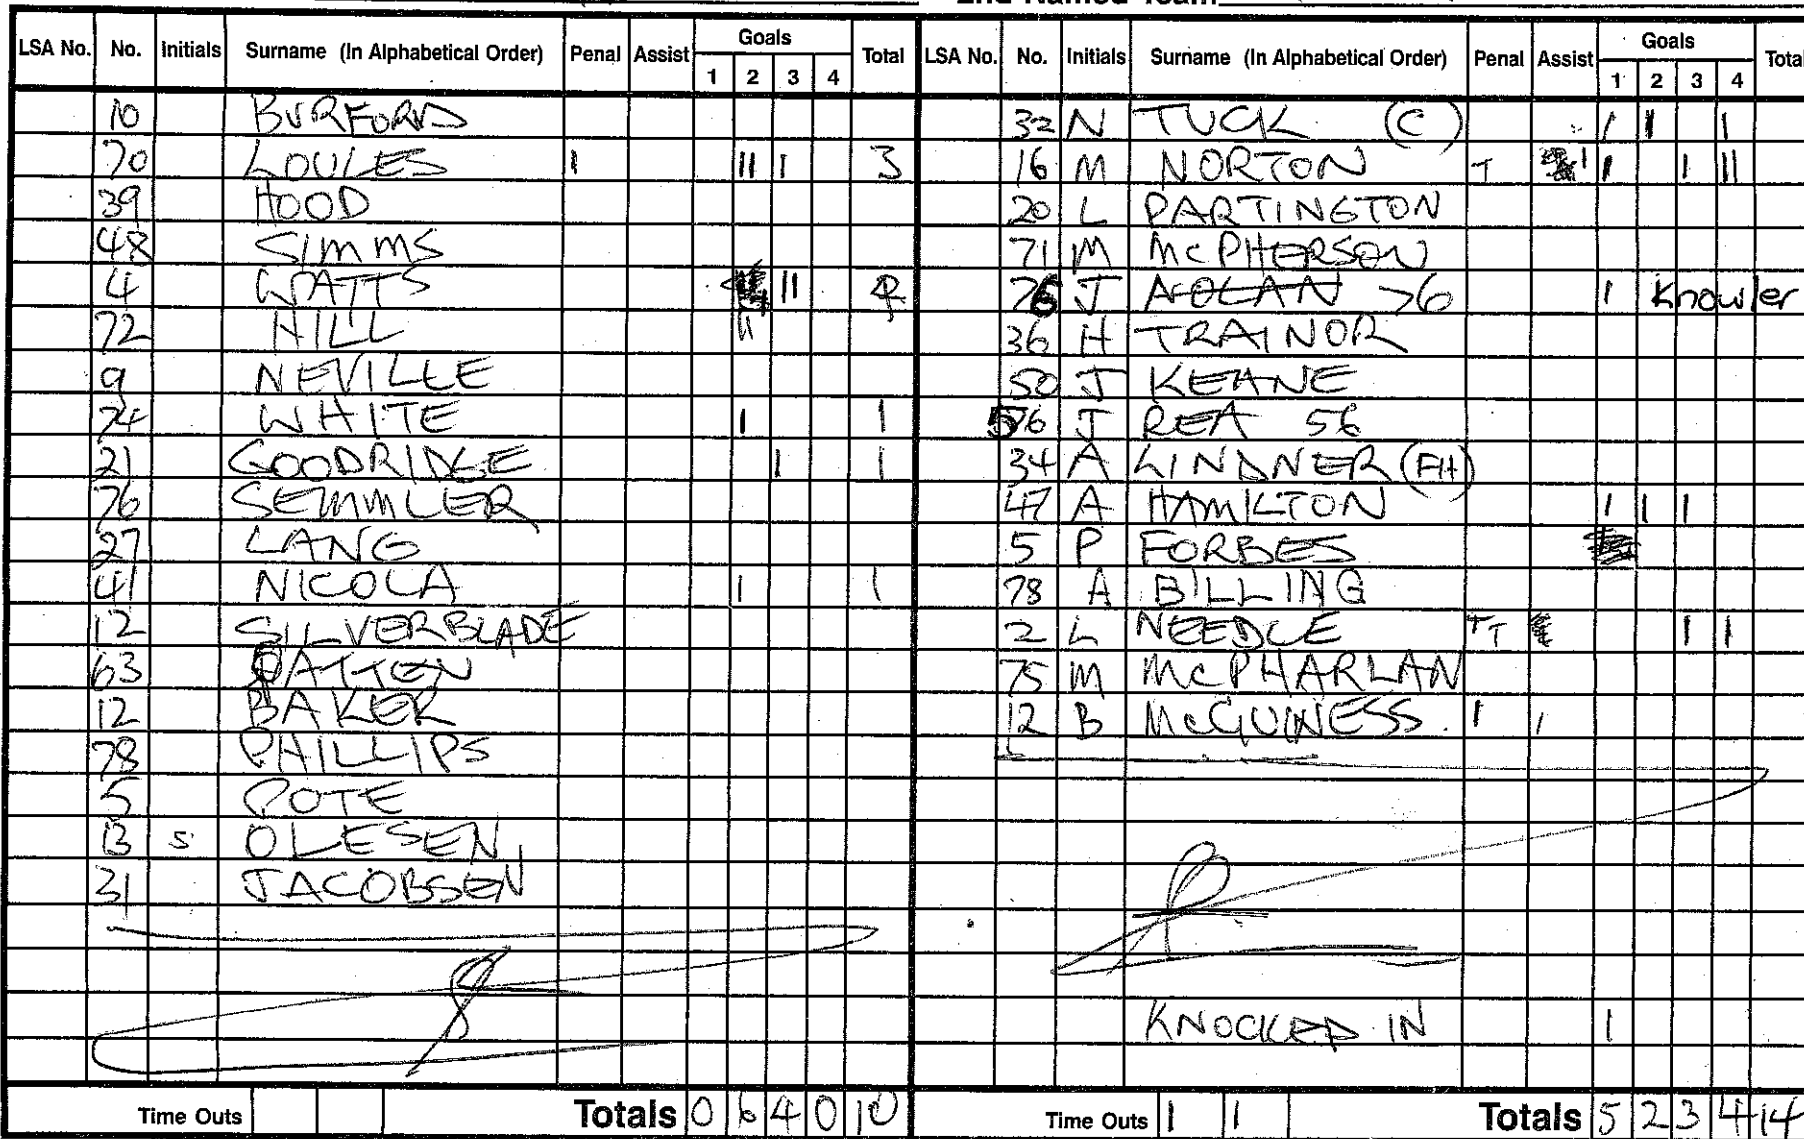 2nd Named Team
LSA No. No. Initials Surname (In Alphabetical Order) Penal Assist Goals 1 2 3 4 Total
10 BURFORD
70 LOULES 1 11 1 3
39 HOOD
48 SIMMS
4 WATTS 11
72 HILL 11
9 NEVILLE
74 WHITE 1 1
21 GOODRIDGE 1 1
76 SEMMLER
27 LANG
41 NICOLA 1 1
12 SILVERBLADE
63 PATTEN
12 BAKER
78 PHILLIPS
5 POTE
13 S OLESEN
31 JACOBSEN
Time Outs Totals 0 6 4 0 10
LSA No. No. Initials Surname (In Alphabetical Order) Penal Assist Goals 1 2 3 4 Total
32 N TUCK (C) 1 1 1
16 M NORTON T 1 1 1 11
20 L PARTINGTON
71 M McPHERSON
76 J NOLAN 76 1 Knowler
36 H TRAINOR
50 J KEANE
56 J REA 56
34 A LINDNER (FH)
47 A HAMILTON 1 1 1
5 P FORBES
78 A BILLING
2 L NEEDLE TT 1 1
75 M McPHARLAN
12 B McGUINESS 1 1
KNOCKED IN 1
Time Outs 1 1 Totals 5 2 3 4 14